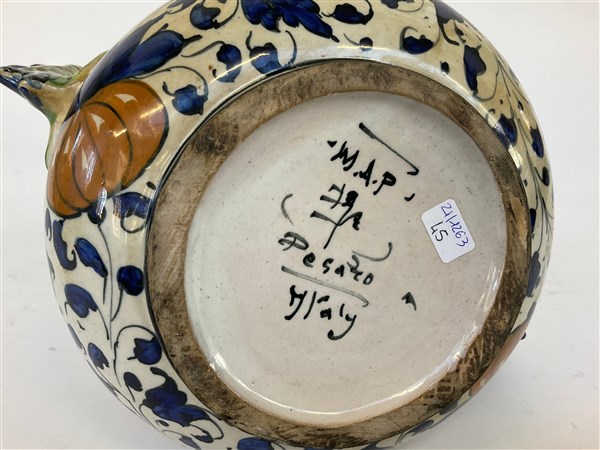 M.A.P.
Pesaro
Italy
21/1263
45